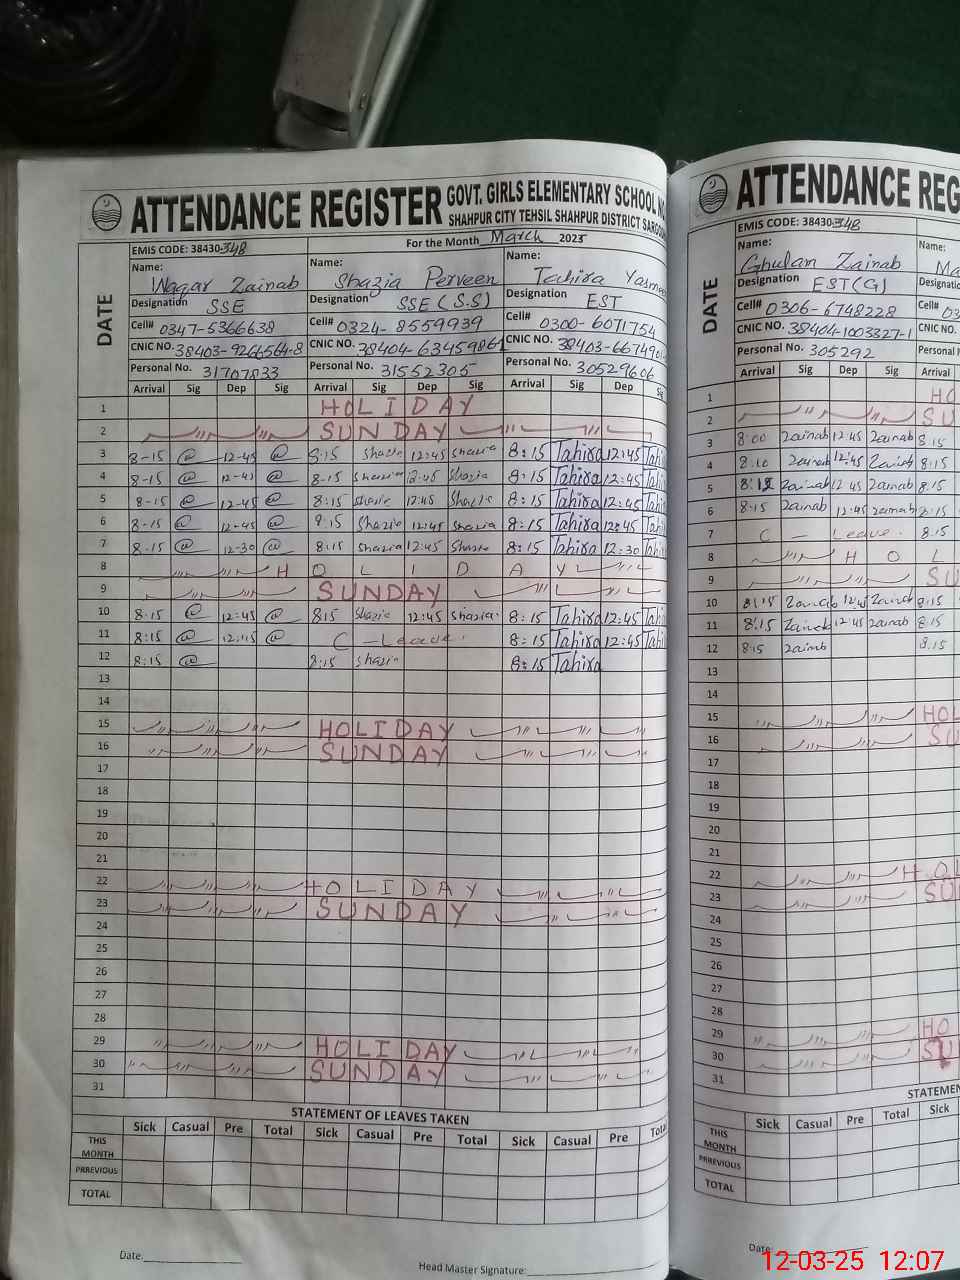 ATTENDANCE REGISTER GOVT. GIRLS ELEMENTARY SCHOOL
SHAHPUR CITY TEHSIL SHAHPUR DISTRICT
EMIS CODE: 38430-348 For the Month March 2025
DATE
Name: Name: Name:
Waqar Zainab Shazia Perveen Tahira
Designation SSE Designation SSE (S.S) Designation EST
Cell# 0347-5366638 Cell# 0324-8559939 Cell# 0300-6071754
CNIC NO. 38403-9266564-8 CNIC NO. 38404- CNIC NO. 38403-
Personal No. 31707833 Personal No. 31552305 Personal No. 30529606
Arrival Sig Dep Sig Arrival Sig Dep Sig Arrival Sig Dep
1 HOLIDAY
2 SUNDAY
3 8-15 12-45 8:15 Shazia 12:45 Shazia 8:15 Tahira 12:45
4 8-15 12-45 8-15 Shazia 12:45 Shazia 8:15 Tahira 12:45
5 8-15 12-45 8:15 Shazia 12:45 Shazia 8:15 Tahira 12:45
6 8-15 12-45 8:15 Shazia 12:45 Shazia 8:15 Tahira 12:45
7 8-15 12-30 8:15 Shazia 12:45 Shazia 8:15 Tahira 12:30
8 HOLIDAY
9 SUNDAY
10 8:15 12:45 8:15 Shazia 12:45 Shazia 8:15 Tahira 12:45
11 8:15 C-Leave 8:15 Tahira 12:45
12 8:15 8:15 Shazia 8:15 Tahira
13
14
15 HOLIDAY
16 SUNDAY
17
18
19
20
21
22 HOLIDAY
23 SUNDAY
24
25
26
27
28
29 HOLIDAY
30 SUNDAY
31
STATEMENT OF LEAVES TAKEN
Sick Casual Pre Total Sick Casual Pre Total Sick Casual Pre
THIS MONTH
PRREVIOUS
TOTAL
Date. Head Master Signature:
ATTENDANCE
EMIS CODE: 38430-348
DATE
Name: Name:
Ghulam Zainab
Designation EST(G)
Cell# 0306-6748228
CNIC NO. 38404-1003327-1
Personal No. 305292
Arrival Sig Dep Sig Arrival
1
2
3 8:00 Zainab 12:45 Zainab 8:15
4 8:10 Zainab 12:45 Zainab 8:15
5 8:12 Zainab 12:45 Zainab 8:15
6 8:15 Zainab 12:45 Zainab 8:15
7 C - Leave 8:15
8 H O L
9 SU
10 8:15 Zainab 12:45 Zainab 8:15
11 8:15 Zainab 12:45 Zainab 8:15
12 8:15 Zainab 8:15
13
14
15 HOL
16 SU
17
18
19
20
21
22 HOL
23 SU
24
25
26
27
28
29 HO
30 SU
31
Sick Casual Pre Total Sick
THIS MONTH
PRREVIOUS
TOTAL
Date:
12-03-25 12:07